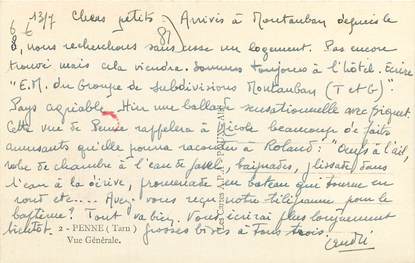 13/7 Chers petits Arrivés à Montauban depuis le
8, nous recherchons sans cesse un logement. Pas encore
trouvé mais cela viendra. Sommes toujours à l'hôtel. Ecrire
"E.M. du Groupe de Subdivisions Montauban (T et G)."
Pays agréable. Hier une ballade sensationnelle avec
Cette vue de Penne rappellera à Nicole beaucoup de faits
amusants qu'elle pourra raconter à Roland: "
robe de chambre à l'eau de javel, baignades, glissades dans
l'eau à la dérive, promenade en bateau qui tourne en
rond etc.... Avez-vous reçu notre télégramme pour le
baptême? Tout va bien. Vous écrirai plus longuement
bientôt. Grosses bises à tous trois.
2 - PENNE (Tarn)
Vue Générale.